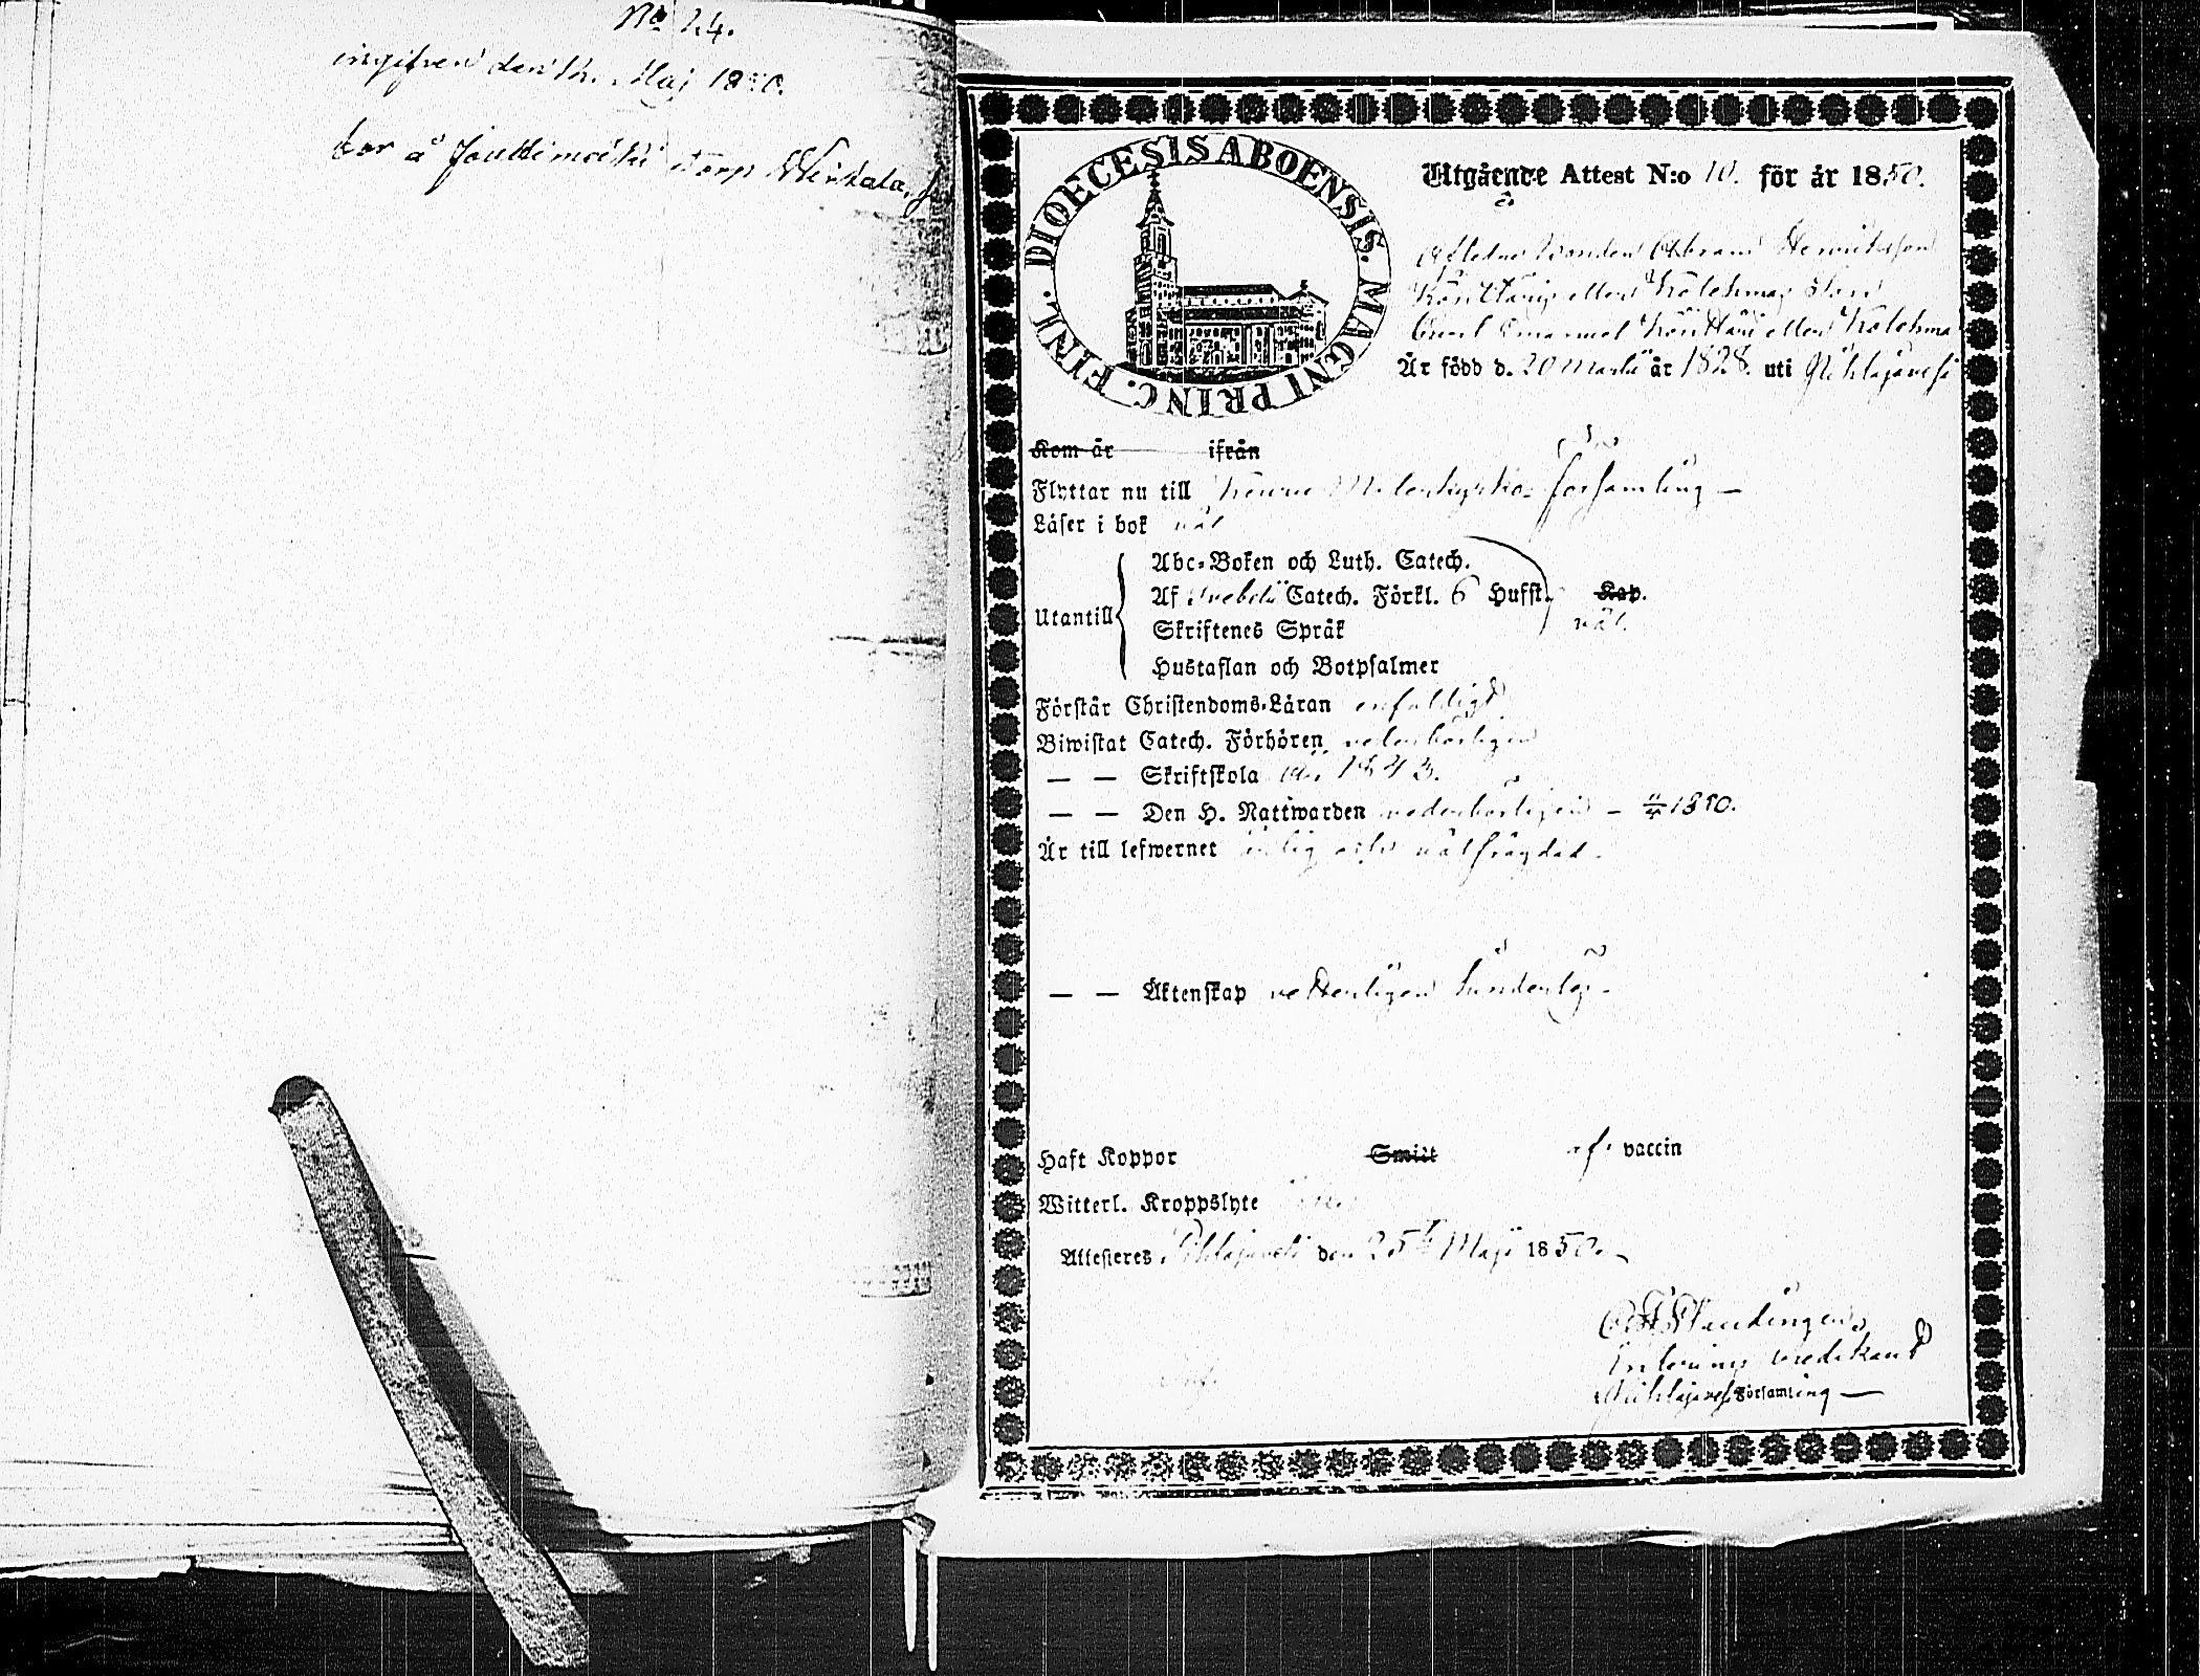 No 24.
ingifven den Maj 1850.
bor å torp
DIOECESIS ABOENSIS. MAGNI PRINC. FINL.
Utgående Attest N:o 10. för år 1850.
Afledne Bonden Abram Henriksson
eller Son
Carl Emanuel eller
Är född d. 20 Martii år 1828. uti Pihlajavesi
Kom år ifrån
Flyttar nu till församling
Läser i bok väl
Utantill
Abc-Boken och Luth. Catech.
Af Svebelii Catech. Förkl. 6 Hufst. Kap.
väl.
Skriftenes Språk
Hustaflan och Botpsalmer
Förstår Christendoms-Läran enfaldigt
Biwistat Catech. Förhören vederbörligen
— — Skriftskola år 1843.
— — Den H. Nattwarden vederbörligen – 1850.
Är till lefwernet ärlig och välfrägdad.
— — Äktenskap vetterligen hinderlös.
Haft Koppor Smitt af vaccin
Witterl. Kroppslyte
Attesteres Pihlajavesi den 25 Maji 1850.
Predikant
Pihlajavesi Församling —